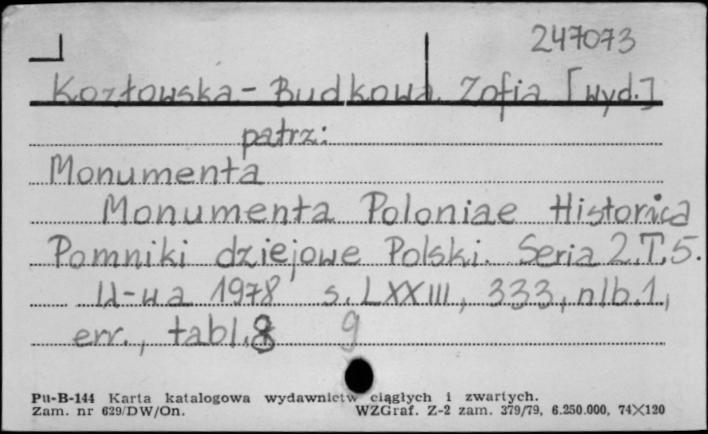 247073
Kozłowska-Budkowa Zofia [wyd.]
patrz:
Monumenta
Monumenta Poloniae Historica
Pomniki dziejowe Polski. Seria 2.T.5.
W-wa 1978 s. LXXIII, 333, nlb.1,
err., tabl. 8 9
Pu-B-144 Karta katalogowa wydawnictw ciągłych i zwartych.
Zam. nr 629/DW/On. WZGraf. Z-2 zam. 379/79, 6.250.000, 74×120